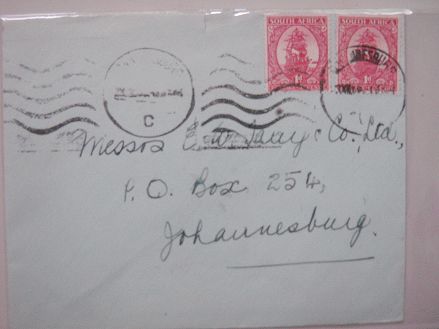 SOUTH AFRICA SOUTH AFRICA
1D 1D
C
Messrs C. W. Hay & Co. Ltd.,
P.O. Box 254,
Johannesburg.